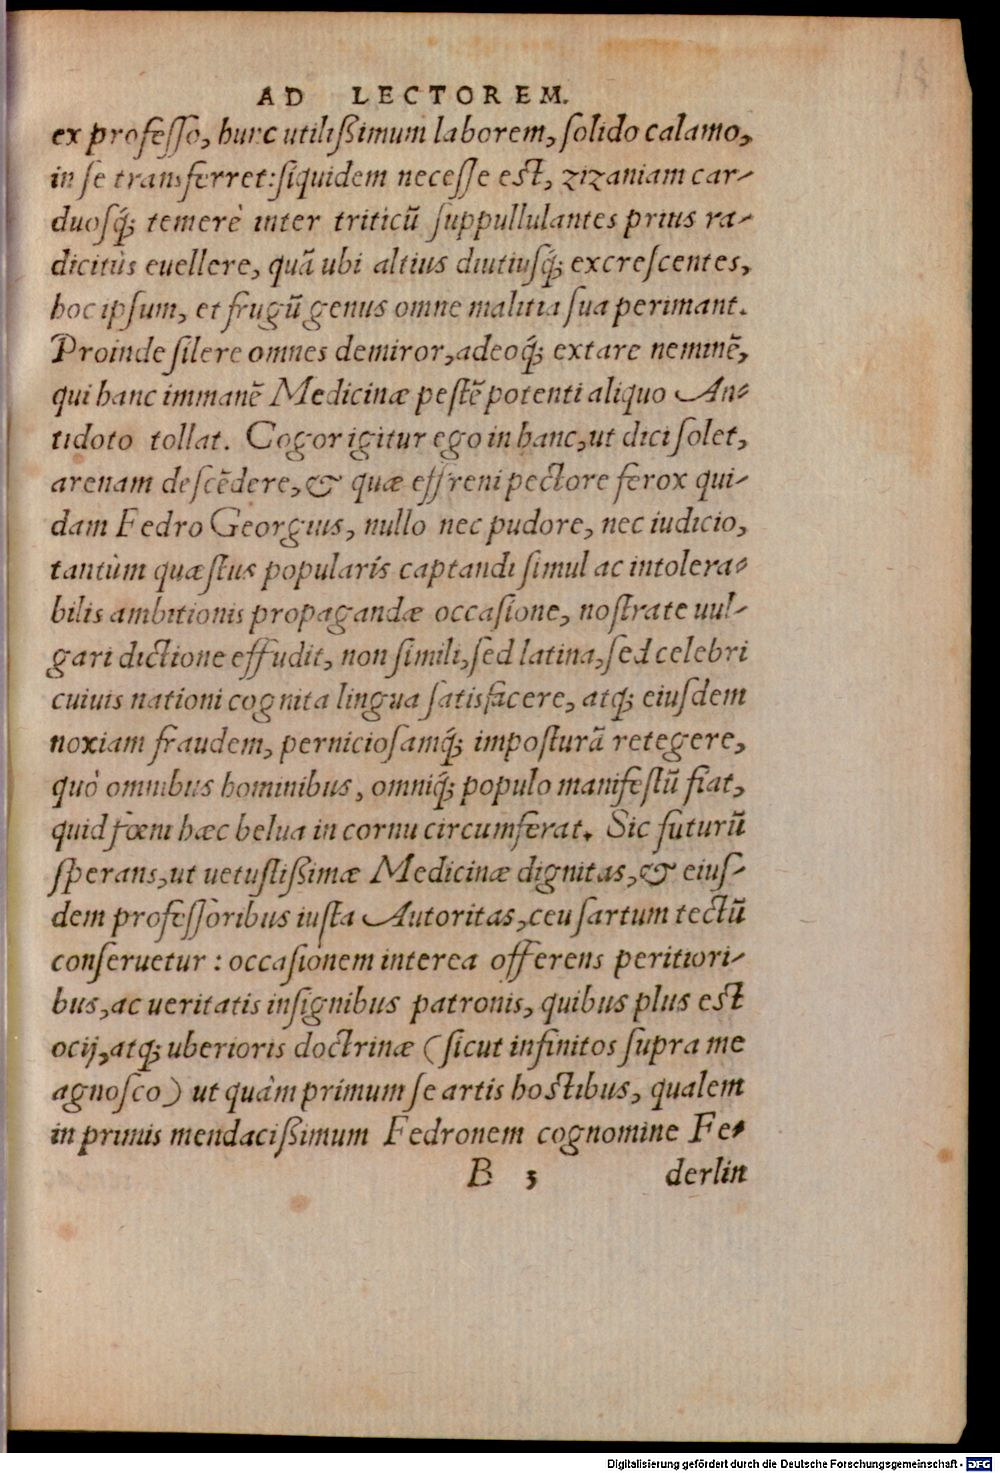 AD LECTOREM.
ex professo, hunc utilißimum laborem, solido calamo,
in se transferret: siquidem necesse est, zizaniam car-
duosq́; temerè inter triticũ suppullulantes prius ra-
dicitùs euellere, quã ubi altius diutiusq́; excrescentes,
hoc ipsum, et frugũ genus omne malitia sua perimant.
Proinde silere omnes demiror, adeoq́; extare neminẽ,
qui hanc immanẽ Medicinæ pestẽ potenti aliquo An-
tidoto tollat. Cogor igitur ego in hanc, ut dici solet,
arenam descẽdere, & quæ effreni pectore ferox qui-
dam Fedro Georgius, nullo nec pudore, nec iudicio,
tantùm quæstus popularis captandi simul ac intolera-
bilis ambitionis propagandæ occasione, nostrate uul-
gari dictione effudit, non simili, sed latina, sed celebri
cuiuis nationi cognita lingua satisfacere, atq; eiusdem
noxiam fraudem, perniciosamq́; imposturã retegere,
quò omnibus hominibus, omniq́; populo manifestũ fiat,
quid fœni hæc belua in cornu circumferat. Sic futurũ
sperans, ut uetustißimæ Medicinæ dignitas, & eius-
dem professoribus iusta Autoritas, ceu sartum tectũ
conseruetur : occasionem interea offerens peritiori-
bus, ac ueritatis insignibus patronis, quibus plus est
ocij, atq; uberioris doctrinæ (sicut infinitos supra me
agnosco) ut quàm primum se artis hostibus, qualem
in primis mendacißimum Fedronem cognomine Fe-
B 3 derlin
Digitalisierung gefördert durch die Deutsche Forschungsgemeinschaft - DFG